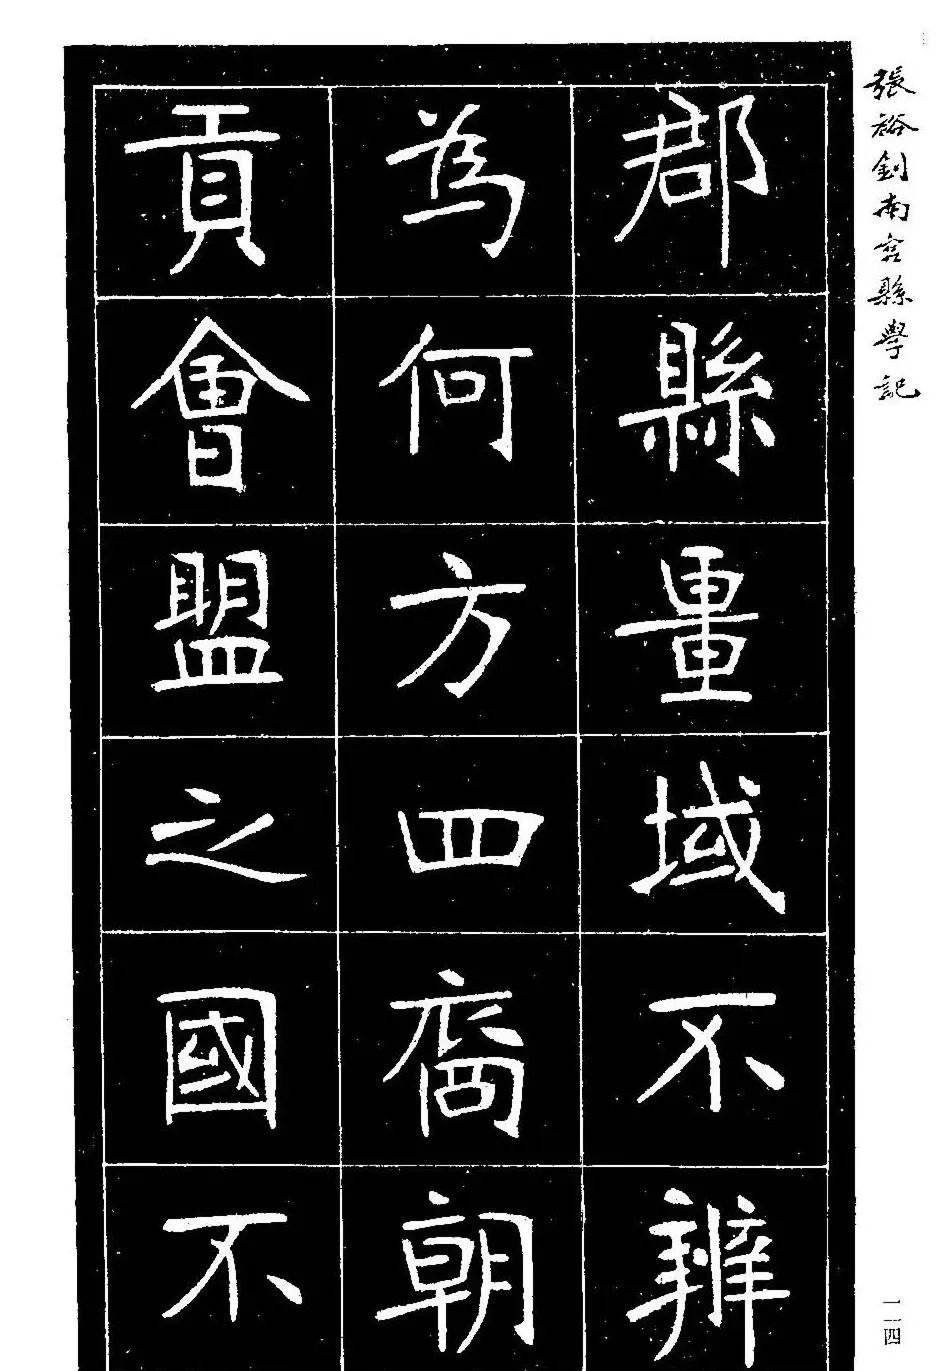 張裕釗南宮縣學記
郡縣畺域不辨
為何方四裔朝
貢會盟之國不
一一四